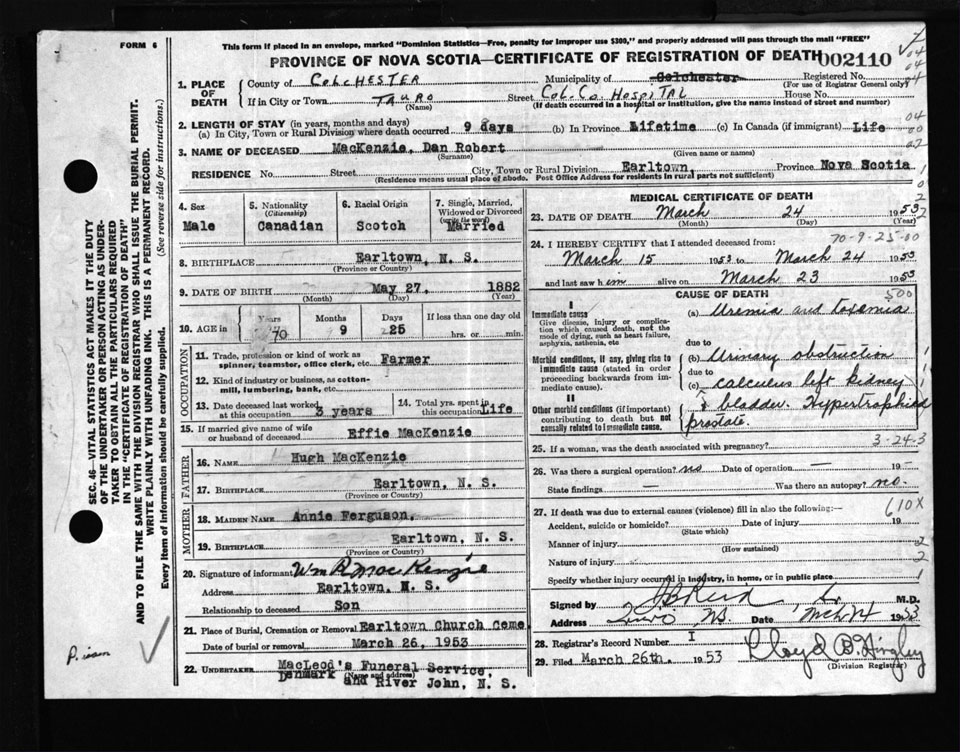 FORM 6
This form if placed in an envelope, marked "Dominion Statistics—Free, penalty for improper use $300," and properly addressed will pass through the mail "FREE"
PROVINCE OF NOVA SCOTIA—CERTIFICATE OF REGISTRATION OF DEATH 002110
1. PLACE OF DEATH County of COLCHESTER Municipality of Colchester Registered No.
(For use of Registrar General only)
If in City or Town TRURO Street Col. Co. HOSPITAL House No.
(Name) (If death occurred in a hospital or institution, give the name instead of street and number)
2. LENGTH OF STAY (in years, months and days)
(a) In City, Town or Rural Division where death occurred 9 days (b) In Province Lifetime (c) In Canada (if immigrant) Life
3. NAME OF DECEASED MacKenzie, Dan Robert
(Surname) (Given name or names)
RESIDENCE No. Street City, Town or Rural Division Earltown, Province Nova Scotia
(Residence means usual place of abode. Post Office Address for residents in rural parts not sufficient)
4. Sex Male
5. Nationality (Citizenship) Canadian
6. Racial Origin Scotch
7. Single, Married, Widowed or Divorced (write the word) Married
8. BIRTHPLACE Earltown, N. S.
(Province or Country)
9. DATE OF BIRTH May 27, 1882
(Month) (Day) (Year)
10. AGE in Years 70 Months 9 Days 25 If less than one day old hrs. or min.
OCCUPATION
11. Trade, profession or kind of work as spinner, teamster, office clerk, etc. Farmer
12. Kind of industry or business, as cotton-mill, lumbering, bank, etc.
13. Date deceased last worked at this occupation 3 years
14. Total yrs. spent in this occupation Life
15. If married give name of wife or husband of deceased Effie MacKenzie
FATHER
16. NAME Hugh MacKenzie
17. BIRTHPLACE Earltown, N. S.
(Province or Country)
MOTHER
18. MAIDEN NAME Annie Ferguson,
19. BIRTHPLACE Earltown, N. S.
(Province or Country)
20. Signature of informant Wm R MacKenzie
Address Earltown, N. S.
Relationship to deceased Son
21. Place of Burial, Cremation or Removal Earltown Church Ceme
Date of burial or removal March 26, 1953
22. UNDERTAKER MacLeod's Funeral Service,
(Name and address)
Denmark and River John, N. S.
MEDICAL CERTIFICATE OF DEATH
23. DATE OF DEATH March 24 1953
(Month) (Day) (Year)
70-9-25-00
24. I HEREBY CERTIFY that I attended deceased from:
March 15 1953 to March 24 1953
and last saw him alive on March 23 1953
CAUSE OF DEATH
I
Immediate cause
Give disease, injury or complication which caused death, not the mode of dying, such as heart failure, asphyxia, asthenia, etc
(a) Uremia and toxemia
due to
Morbid conditions, if any, giving rise to immediate cause (stated in order proceeding backwards from immediate cause).
(b) Urinary obstruction
due to
(c) calculus left kidney
II
Other morbid conditions (if important) contributing to death but not causally related to immediate cause.
& bladder. Hypertrophied
prostate.
3-24-3
25. If a woman, was the death associated with pregnancy?
26. Was there a surgical operation? no Date of operation 19
State findings — Was there an autopsy? no.
610X
27. If death was due to external causes (violence) fill in also the following:—
Accident, suicide or homicide? Date of injury 19
(State which)
Manner of injury
(How sustained)
Nature of injury
Specify whether injury occurred in industry, in home, or in public place
Signed by M.D.
Address Truro NS. Date 1953
28. Registrar's Record Number I
29. Filed March 26th. 1953 Lloyd B. Hingley
(Division Registrar)
SEC. 46—VITAL STATISTICS ACT MAKES IT THE DUTY OF THE UNDERTAKER OR PERSON ACTING AS UNDERTAKER TO OBTAIN ALL THE PARTICULARS REQUIRED IN THE "CERTIFICATE OF REGISTRATION OF DEATH" AND TO FILE THE SAME WITH THE DIVISION REGISTRAR WHO SHALL ISSUE THE BURIAL PERMIT.
WRITE PLAINLY WITH UNFADING INK. THIS IS A PERMANENT RECORD.
Every item of information should be carefully supplied. (See reverse side for instructions.)